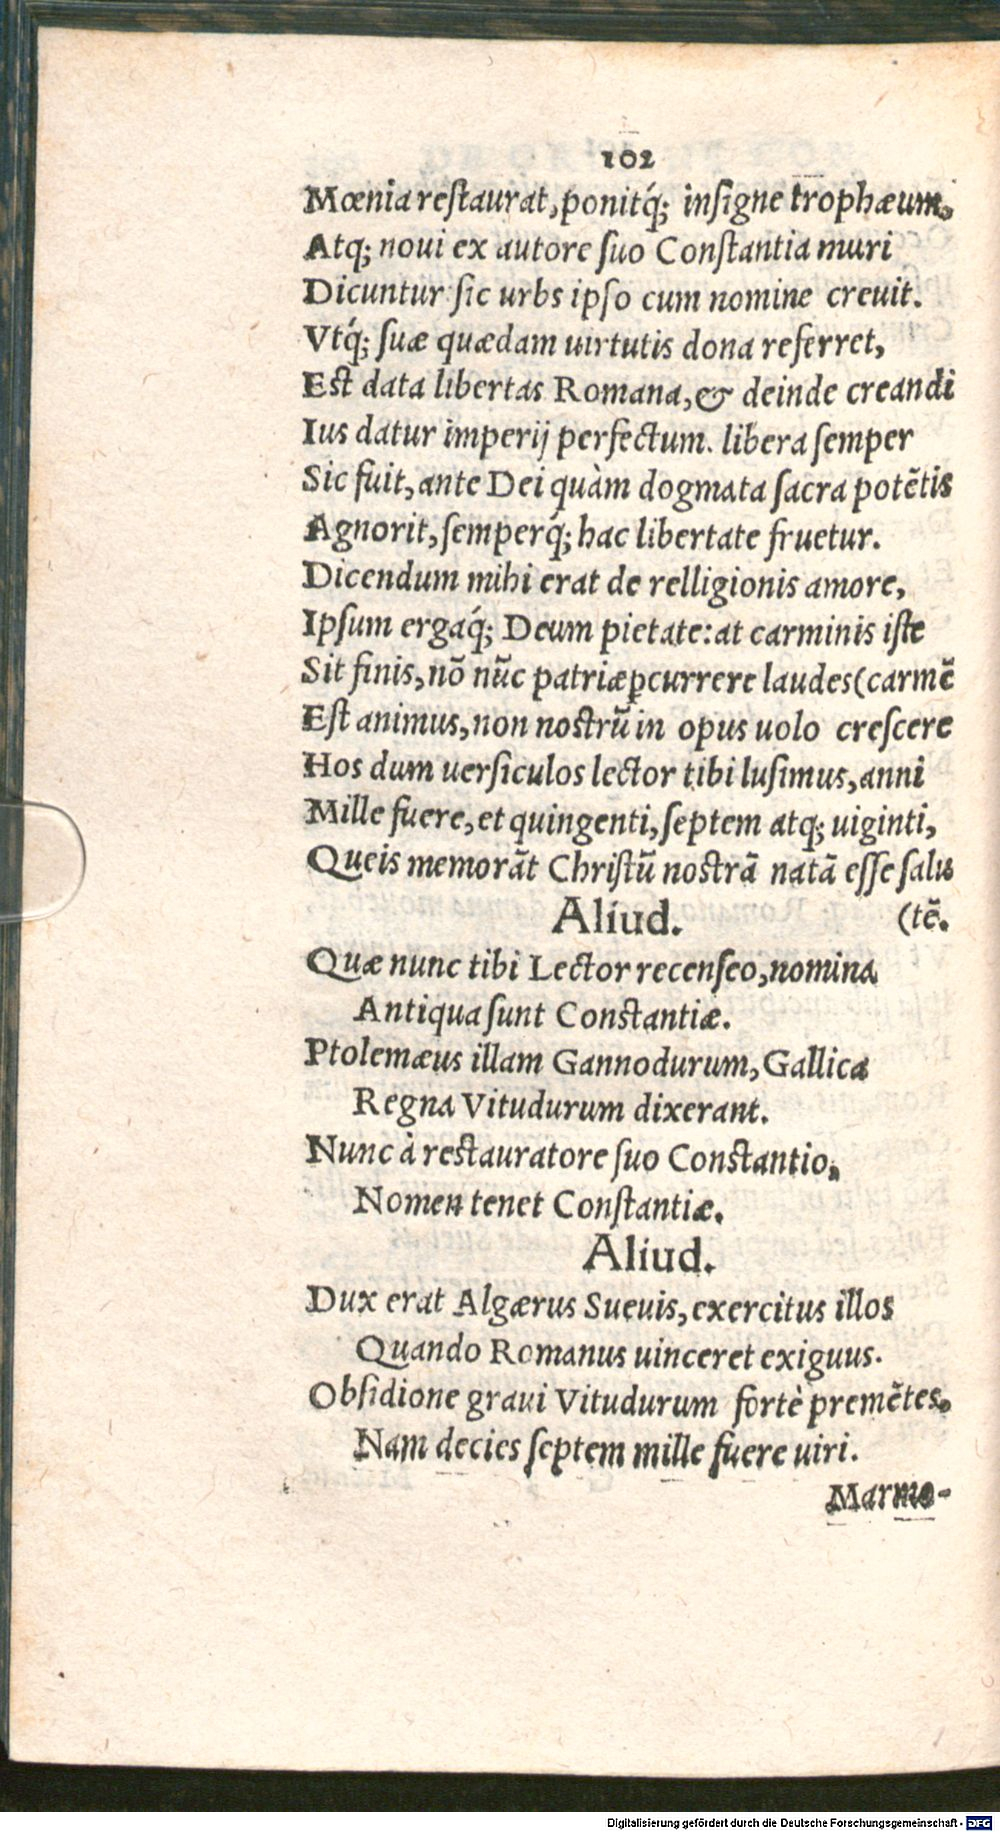 102
Mœnia reſtaurat, ponitq́; inſigne trophæum,
Atq; noui ex autore ſuo Conſtantia muri
Dicuntur ſic urbs ipſo cum nomine creuit.
Vtq́; ſuæ quædam uirtutis dona referret,
Eſt data libertas Romana, & deinde creandi
Ius datur imperij perfectum. libera ſemper
Sic fuit, ante Dei quàm dogmata ſacra potētis
Agnorit, ſemperq́; hac libertate fruetur.
Dicendum mihi erat de relligionis amore,
Ipſum ergaq́; Deum pietate: at carminis iſte
Sit finis, nō nūc patriæ ꝑcurrere laudes (carmē
Eſt animus, non noſtrū in opus uolo creſcere
Hos dum uerſiculos lector tibi luſimus, anni
Mille fuere, et quingenti, ſeptem atq; uiginti,
Queis memorāt Chriſtū noſtrā natā eſſe ſalu
Aliud. (tē.
Quæ nunc tibi Lector recenſeo, nomina
Antiqua ſunt Conſtantiæ.
Ptolemæus illam Gannodurum, Gallica
Regna Vitudurum dixerant.
Nunc à reſtauratore ſuo Conſtantio,
Nomen tenet Conſtantiæ.
Aliud.
Dux erat Algærus Sueuis, exercitus illos
Quando Romanus uinceret exiguus.
Obſidione graui Vitudurum fortè premētes,
Nam decies ſeptem mille fuere uiri.
Marmo-
Digitalisierung gefördert durch die Deutsche Forschungsgemeinschaft - DFG